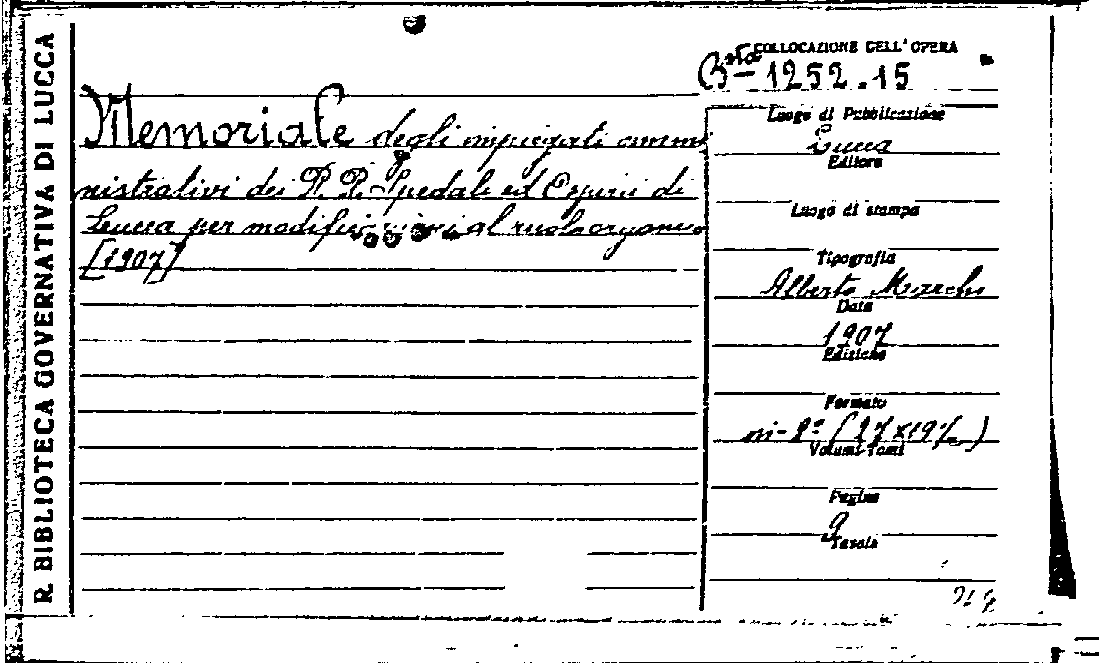 R. BIBLIOTECA GOVERNATIVA DI LUCCA
COLLOCAZIONE DELL'OPERA
Bsta - 1252.15
Memoriale degli impiegati ammi
nistrativi dei R. R. Spedali ed Ospizi di
Lucca per modificazioni al ruolo organico
[1907]
Luogo di Pubblicazione
Lucca
Editore
Luogo di stampa
Tipografia
Alberto Marchi
Data
1907
Edizione
Formato
in-8° (27x19%)
Volumi-Tomi
Pagine
9
Tavole